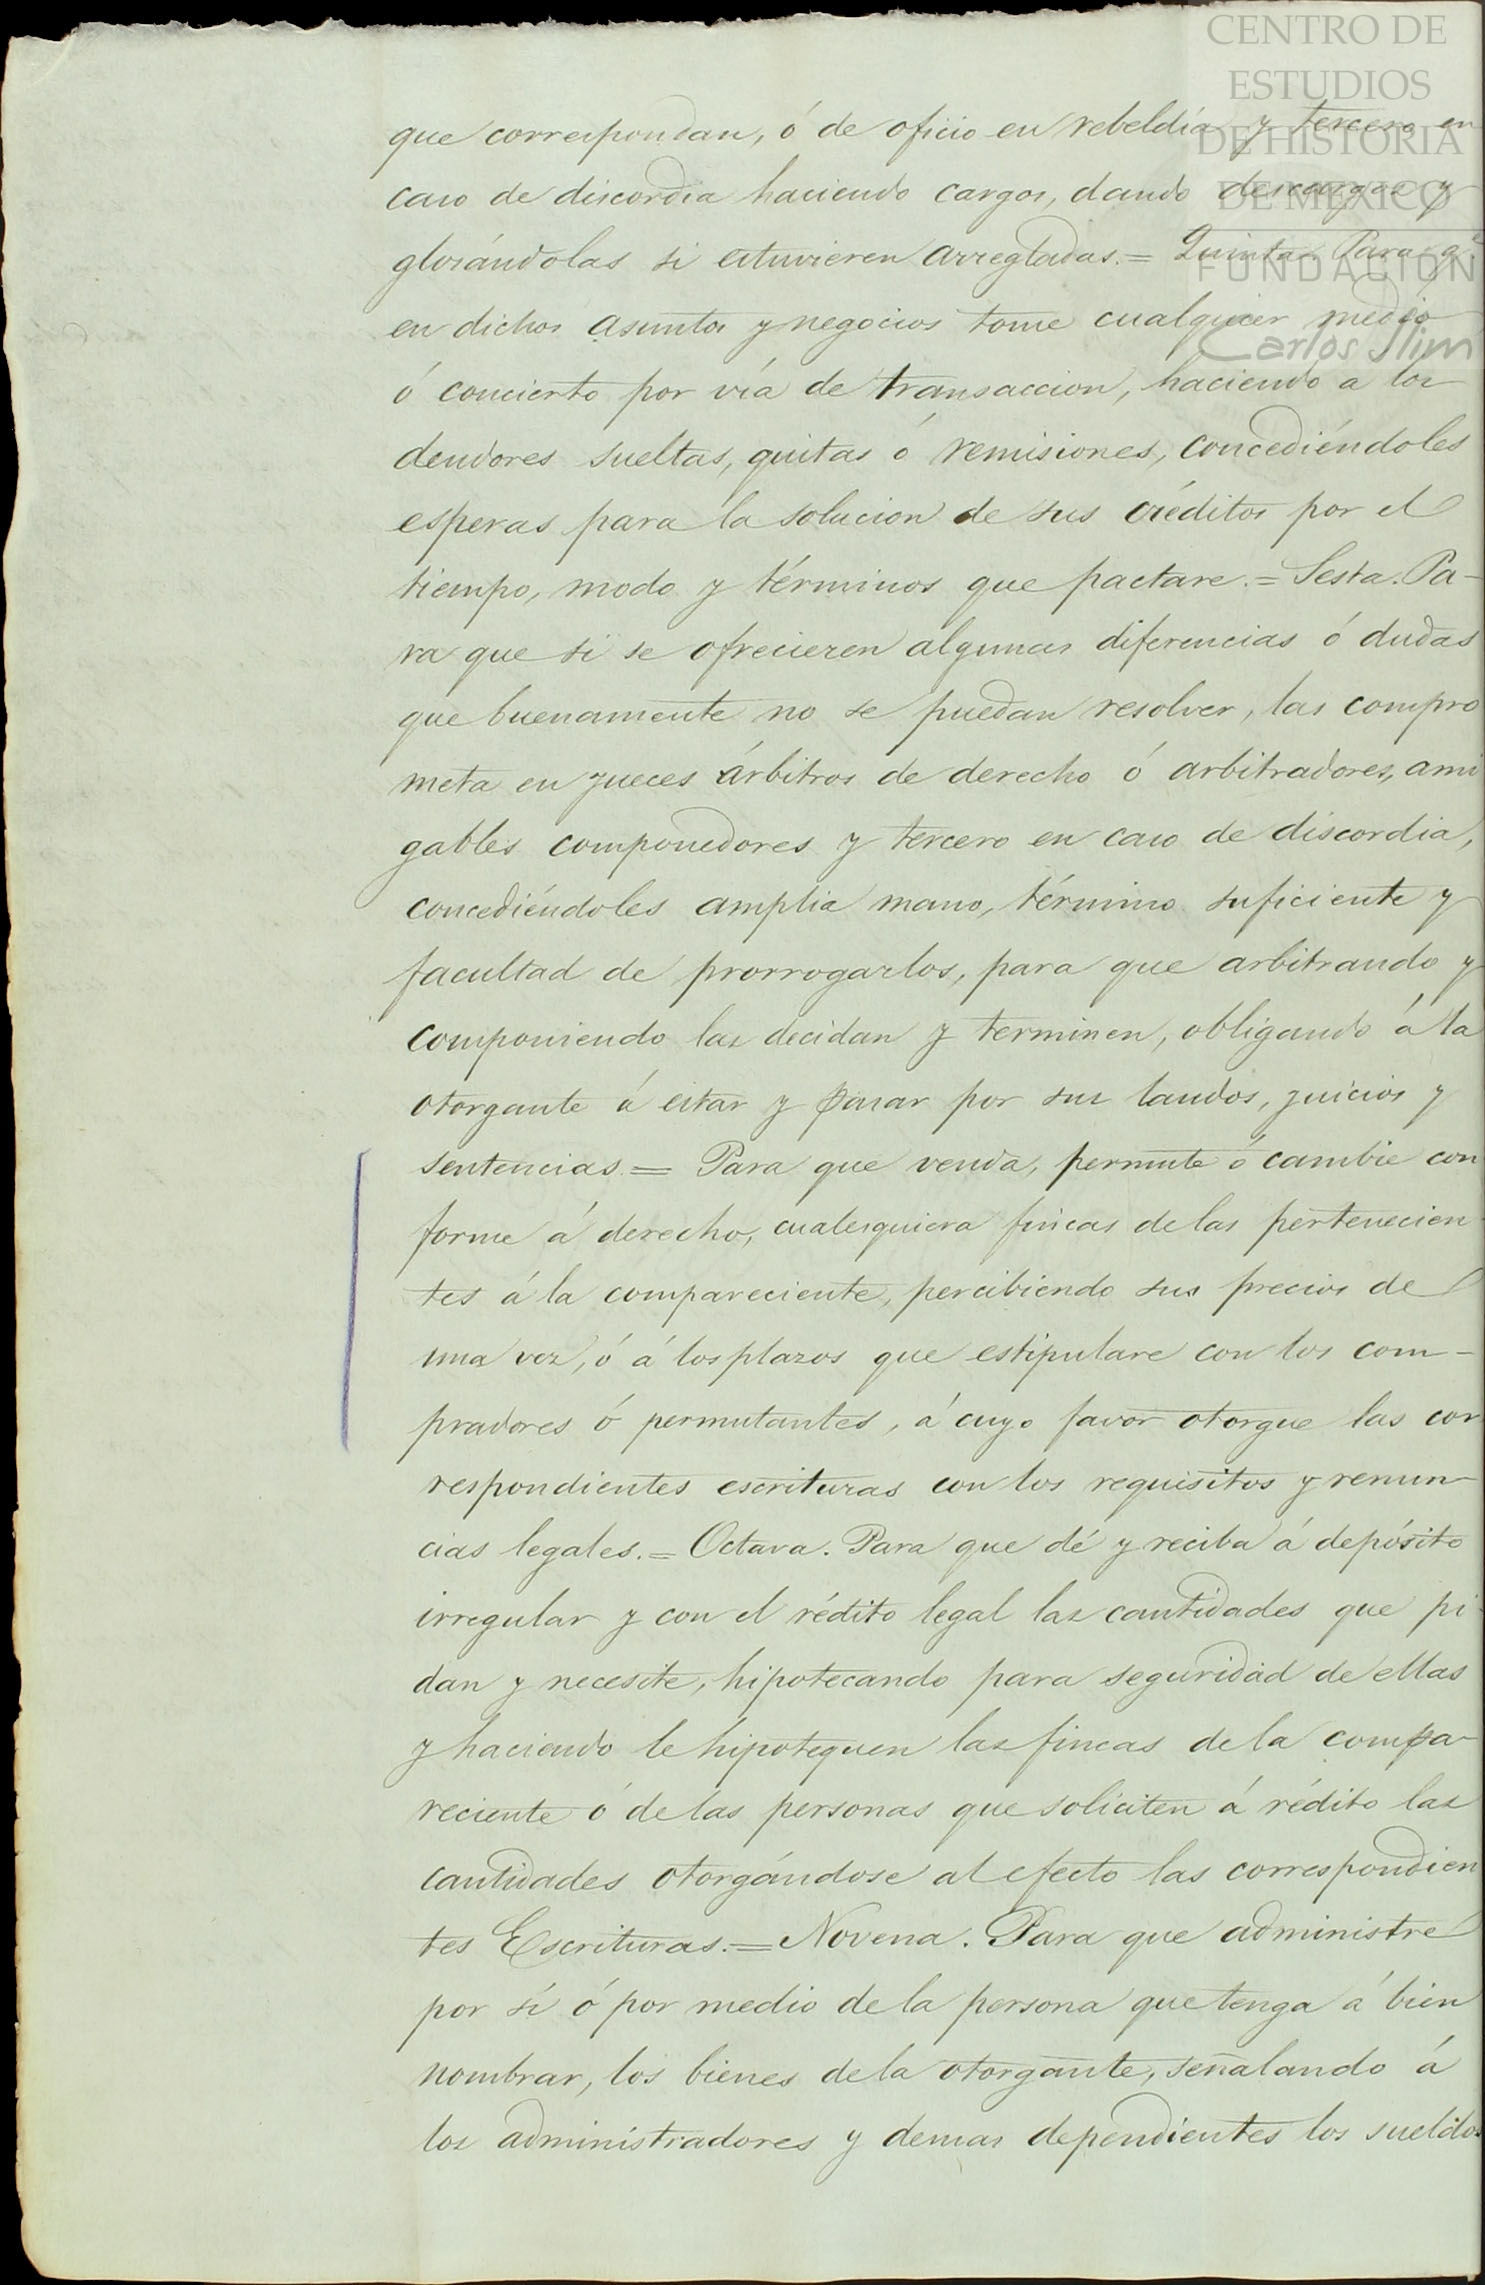 CENTRO DE
ESTUDIOS
DE HISTORIA
DE MEXICO
FUNDACIÓN
Carlos Slim
que correspondan, ó de oficio en rebeldía y tercero en
caso de discordia haciendo cargos, dando descargos y
glosándolas si estuvieren arregladas.= Quinta. Para q.e
en dichos asuntos y negocios tome cualquier medio
ó concierto por vía de transaccion, haciendo a los
deudores sueltas, quitas ó remisiones, concediéndoles
esperas para la solucion de sus créditos por el
tiempo, modo y términos que pactare.= Sesta. Pa-
ra que si se ofrecieren algunas diferencias ó dudas
que buenamente no se puedan resolver, las compro
meta en jueces árbitros de derecho ó arbitradores, ami
gables componedores y tercero en caso de discordia,
concediéndoles amplia mano, término suficiente y
facultad de prorrogarlos, para que arbitrando y
componiendo las decidan y terminen, obligando á la
otorgante á estar y pasar por sus laudos, juicios y
sentencias.= Para que venda, permute ó cambie con
forme á derecho, cualesquiera fincas de las pertenecien-
tes á la compareciente, percibiendo sus precios de
una vez, ó á los plazos que estipulare con los com-
pradores ó permutantes, á cuyo favor otorgue las cor
respondientes escrituras con los requisitos y renun-
cias legales.= Octava. Para que dé y reciba á depósito
irregular y con el rédito legal las cantidades que pi-
dan y necesite, hipotecando para seguridad de ellas
y haciendo le hipotequen las fincas de la compa-
reciente ó de las personas que soliciten á rédito las
cantidades otorgándose al efecto las correspondien
tes Escrituras.= Novena. Para que administre
por sí ó por medio de la persona que tenga á bien
nombrar, los bienes de la otorgante, señalando á
los administradores y demas dependientes los sueldos